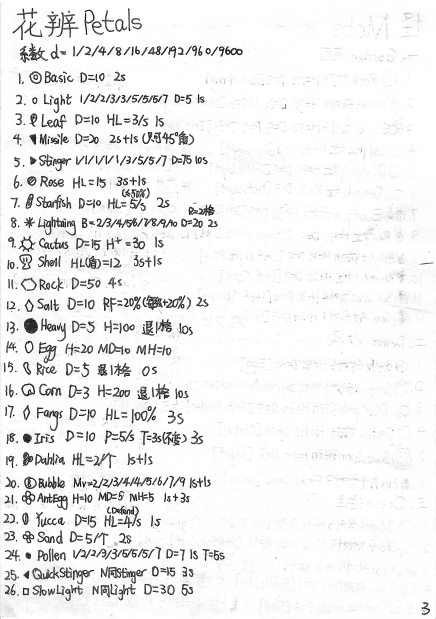 花辨Petals
系数 d= 1/2/4/8/16/48/192/960/9600
1. Basic D=10 2s
2. Light 1/2/2/3/3/5/5/5/7 D=5 1s
3. Leaf D=10 HL=3/s 1s
4. Missile D=20 2s+1s (只可45°角)
5. Stinger 1/1/1/1/1/3/5/5/7 D=75 10s
6. Rose HL=15 3s+1s
7. Starfish D=10 HL=5/s (≤50%) 2s
8. Lightning B=2/3/4/5/6/7/8/9/10 D=20 2s R=2格
9. Cactus D=15 H+=30 1s
10. Shell HL(盾)=12 3s+1s
11. Rock D=50 4s
12. Salt D=10 RF=20%(每+20%) 2s
13. Heavy D=5 H=100 退1格 10s
14. Egg H=20 MD=10 MH=10
15. Rice D=5 退1格 0s
16. Corn D=3 H=200 退1格 10s
17. Fangs D=10 HL=100% 3s
18. Iris D=10 P=5/s T=3s 3s
19. Dahlia HL=2/个 1s+1s
20. Bubble Mv=2/2/3/4/4/5/6/7/9 1s+1s
21. AntEgg H=10 MD=5 MH=5 1s+3s
22. Yucca D=15 HL=4/s (Defend) 1s
23. Sand D=5/个 2s
24. Pollen 1/2/2/3/3/5/5/5/7 D=7 1s T=5s
25. QuickStinger N同Stinger D=15 3s
26. SlowLight N同Light D=30 5s
3